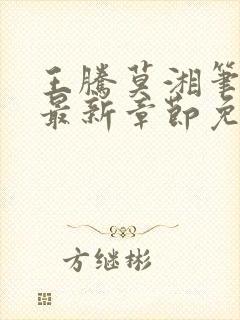 王騰莫湘筆
最新章節免
方继彬